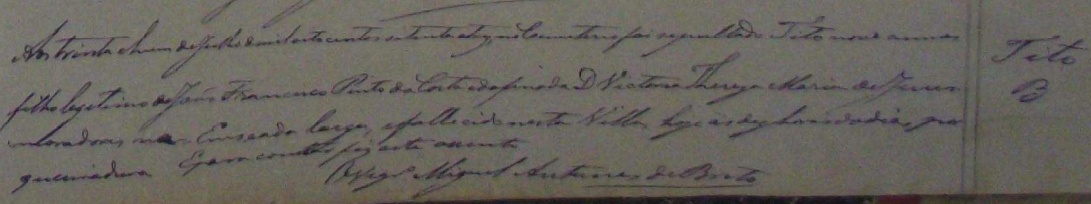 Aos trinta e hum de Julho de mil oito centos setenta e hum no Cemiterio foi sepultado Tito nove annos
filho legitimo de João Francisco Pinto da Costa e da finada D Victoria Thereza Maria de Jesus
moradores na Enseada larga, e fallecido nesta Villa, hoje as dez horas do dia, por
queimadura E para constar fiz este assento
O Vigrº Miguel Antunes de Brito
Tito
B